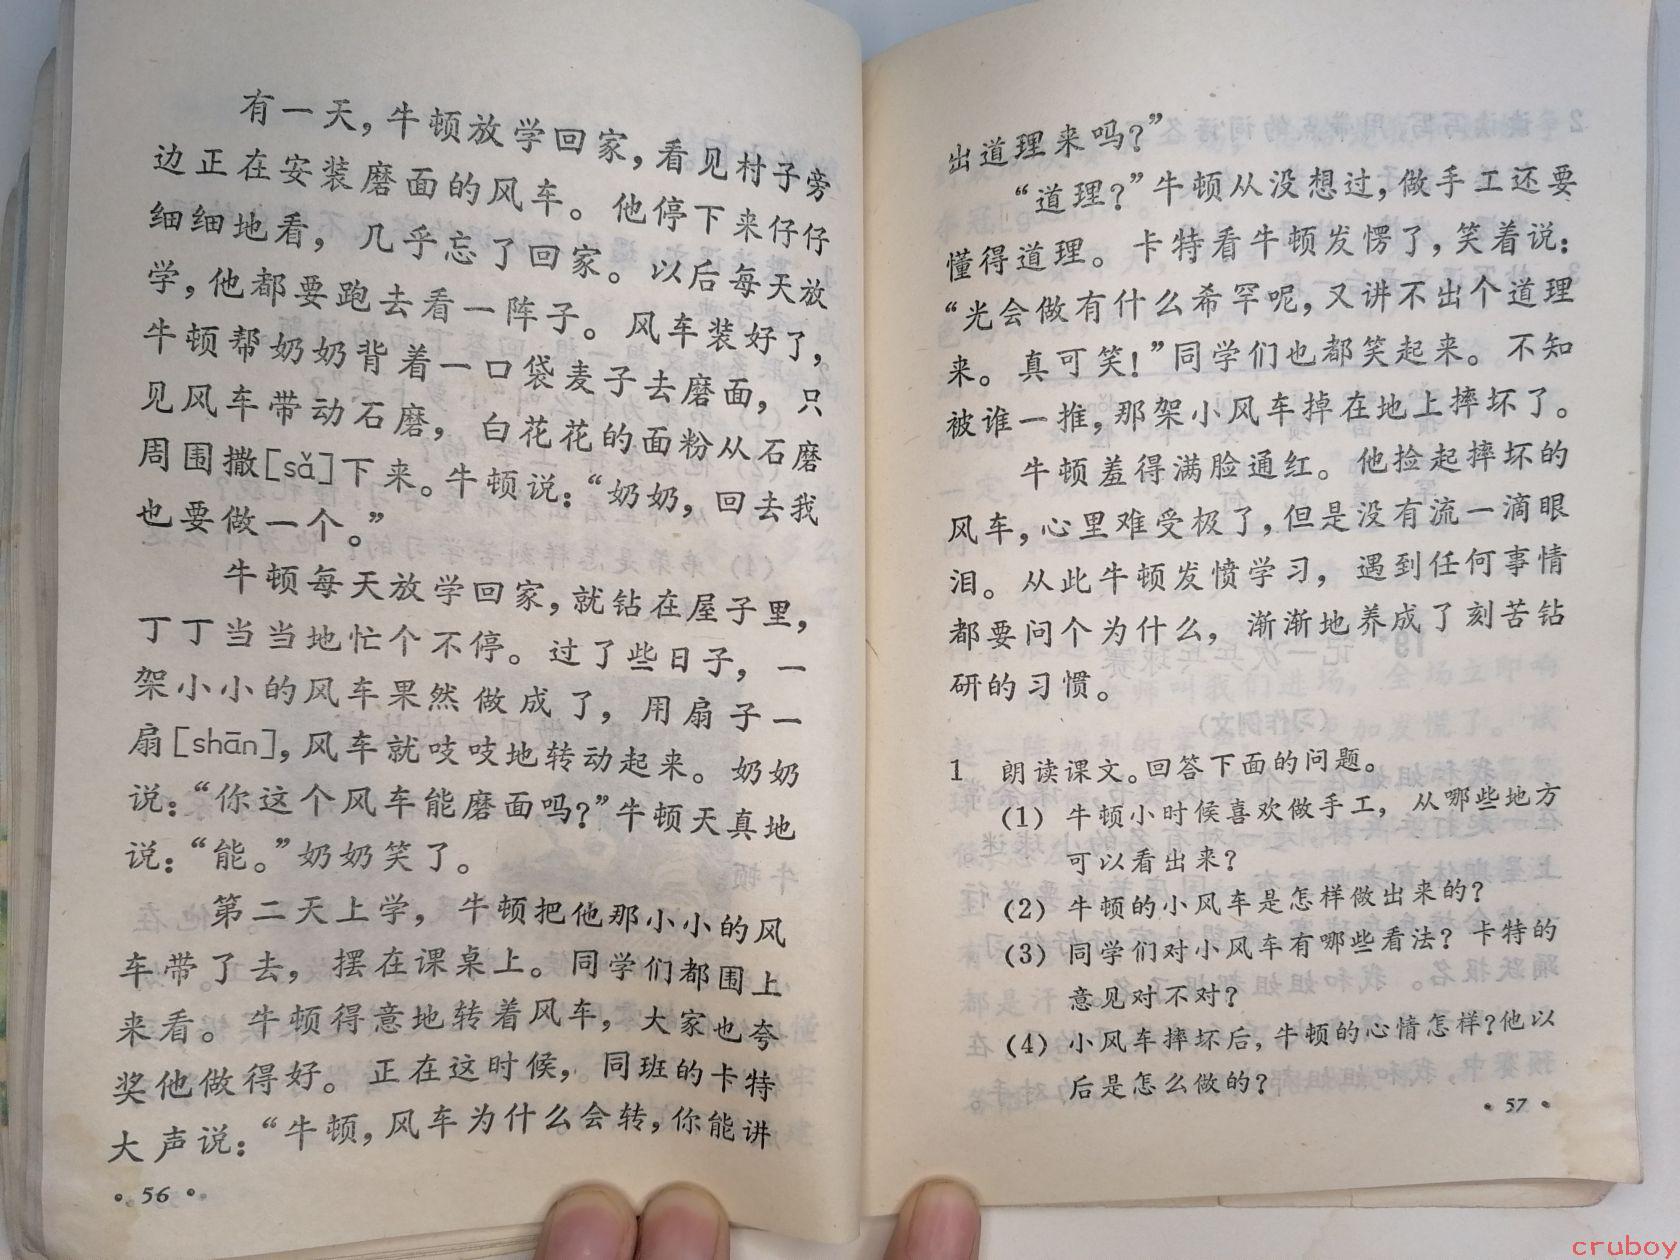 有一天，牛顿放学回家，看见村子旁
边正在安装磨面的风车。他停下来仔仔
细细地看，几乎忘了回家。以后每天放
学，他都要跑去看一阵子。风车装好了，
牛顿帮奶奶背着一口袋麦子去磨面，只
见风车带动石磨，白花花的面粉从石磨
周围撒[sǎ]下来。牛顿说：“奶奶，回去我
也要做一个。”
牛顿每天放学回家，就钻在屋子里，
丁丁当当地忙个不停。过了些日子，一
架小小的风车果然做成了，用扇子一
扇[shān]，风车就吱吱地转动起来。奶奶
说：“你这个风车能磨面吗？”牛顿天真地
说：“能。”奶奶笑了。
第二天上学，牛顿把他那小小的风
车带了去，摆在课桌上。同学们都围上
来看。牛顿得意地转着风车，大家也夸
奖他做得好。正在这时候，同班的卡特
大声说：“牛顿，风车为什么会转，你能讲
·56·
出道理来吗？”
“道理？”牛顿从没想过，做手工还要
懂得道理。卡特看牛顿发愣了，笑着说：
“光会做有什么希罕呢，又讲不出个道理
来。真可笑！”同学们也都笑起来。不知
被谁一推，那架小风车掉在地上摔坏了。
牛顿羞得满脸通红。他捡起摔坏的
风车，心里难受极了，但是没有流一滴眼
泪。从此牛顿发愤学习，遇到任何事情
都要问个为什么，渐渐地养成了刻苦钻
研的习惯。
1 朗读课文。回答下面的问题。
(1) 牛顿小时候喜欢做手工，从哪些地方
可以看出来？
(2) 牛顿的小风车是怎样做出来的？
(3) 同学们对小风车有哪些看法？卡特的
意见对不对？
(4) 小风车摔坏后，牛顿的心情怎样？他以
后是怎么做的？
·57·
cruboy